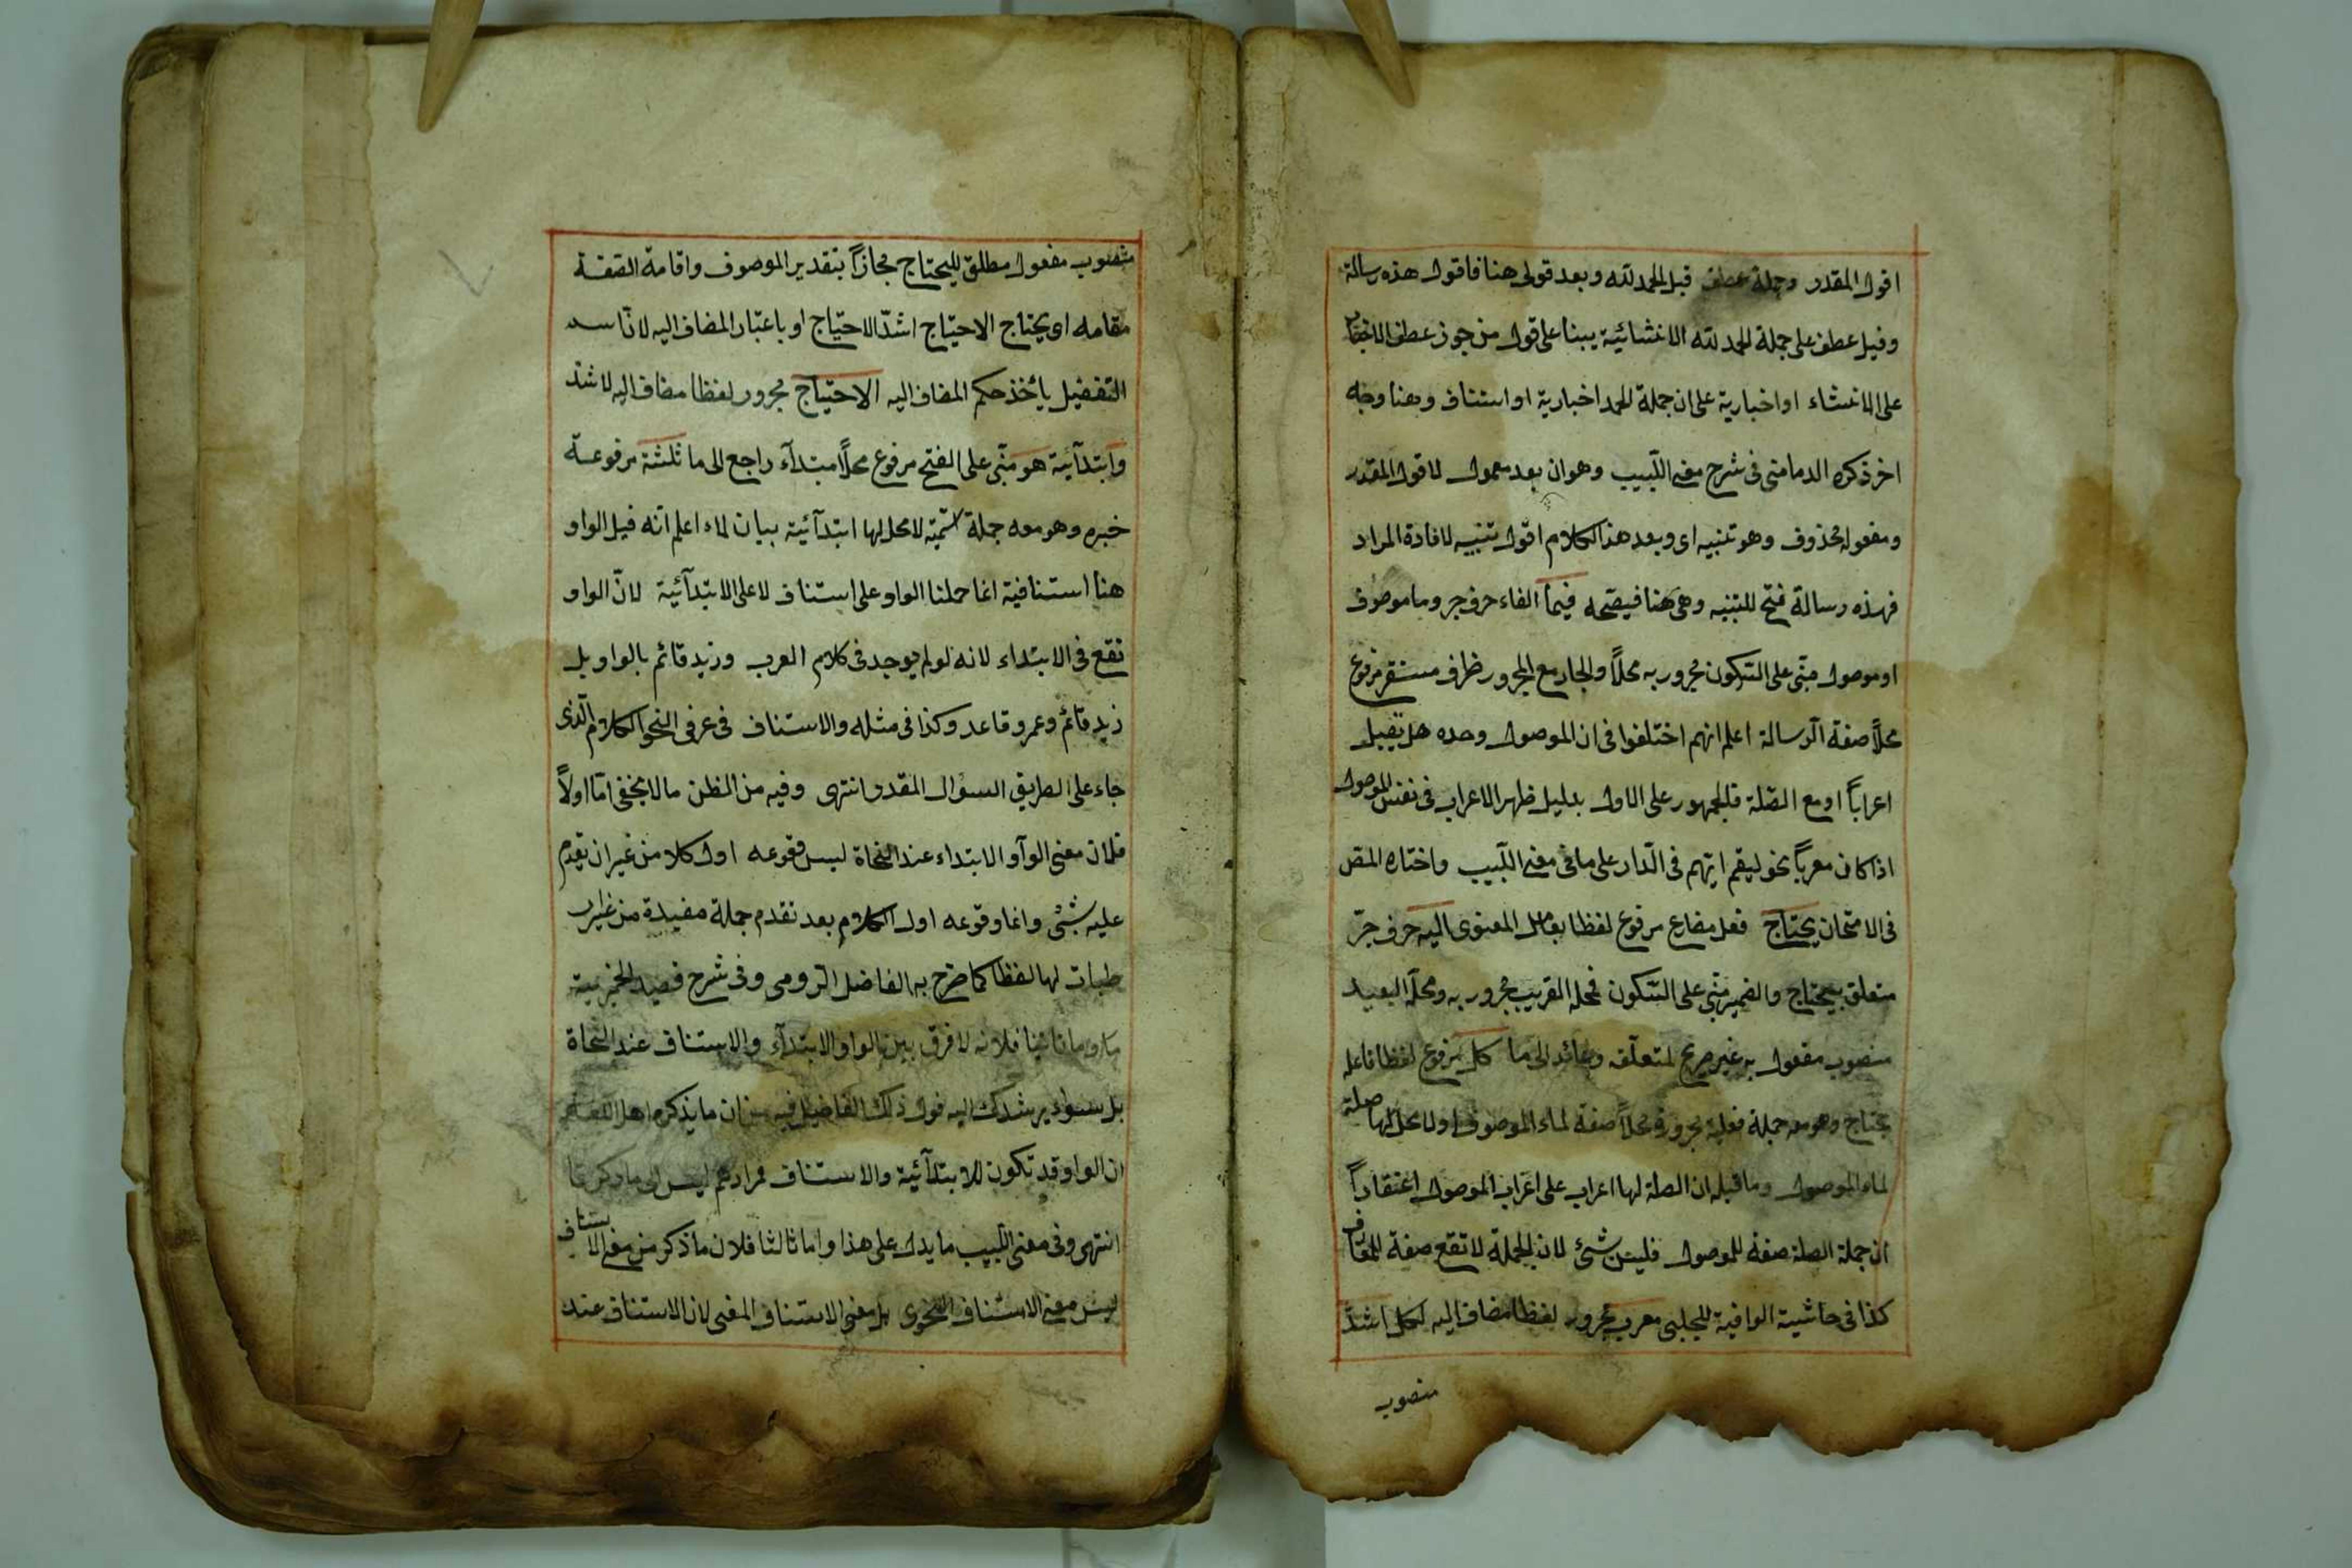 اقول المقدر وجملة عطف قبل الحمد لله وبعد قولى هنا فاقول هذه رسالة
وقيل عطف على جملة الحمد لله الانشائية يبنا على قول من جوز عطف الاخبار
على الانشاء او اخبارية على ان جملة الحمد اخبارية او استناف وهنا وجه
اخر ذكره الدمامنى فى شرح مغنى اللّبيب وهو ان بعد معمول لاقول المقدر
ومفعوله محذوف وهو تنبيه اى وبعد هذا الكلام اقول تنبيه لافادة المراد
فهذه رسالة فتح للتنبيه وهى هنا فيصحه فيما الفاء حرف جر وما موصوف
او موصول مبنّى على السّكون مجرور به محلاً والجار مع المجرور ظرف مستقر مرفوع
محلاً صفة الرسالة اعلم انهم اختلفوا فى ان الموصول وحده هل يقبل
اعراباً او مع الصّلة فالجمهور على الاول بدليل ظهر الاعراب فى نفس الموصول
اذا كان معرباً نحو ليقم ايّهم فى الدّار على ما فى مغنى اللّبيب واختاره المص
فى الامتحان يحتاج فعل مضارع مرفوع لفظا بعامل المعنوى اليه حرف جرّ
متعلق بيحتاج والضمير مبنّى على السّكون فمحله القريب مجرور به ومحلّه البعيد
منصوب مفعول به غير صريح لمتعلّقه وعائد الى ما كل مرفوع لفظا فاعل
يحتاج وهو معه جملة فعلية مجرورة محلاً صفة لماء الموصوف او لا محل لها صلة
لماء الموصول وما قيل ان الصلة لها اعراب على اعراب الموصول اعتقاداً
ان جملة الصلة صفة للموصول فليس بشئ لان الجملة لا تقع صفة للمعارف
كذا فى حاشية الوافية للچلبى معرب مجرور لفظا مضاف اليه لكل اشدّ
منصوب
منصوب مفعول مطلق ليحتاج مجازاً بتقدير الموصوف واقامة الصفة
مقامه اى يحتاج الاحتياج اشدّ الاحتياج او باعتبار المضاف اليه لانّ اسم
التفضيل يأخذ حكم المضاف اليه الاحتياج مجرور لفظا مضاف اليه لاشد
وابتدآئية هو مبنّى على الفتح مرفوع محلاً مبتدآء راجع الى ما ثلثة مرفوعة
خبره وهو معه جملة اسمية لا محل لها ابتدآئية بيان لماء اعلم انه قيل الواو
هنا استنافية انما حملنا الواو على استناف لا على الابتدآئية لانّ الواو
تقع فى الابتداء لانه لو لم يوجد فى كلام العرب وزيد قائم بالواو بل
زيد قائم وعمرو قاعد وكذا فى مثله والاستناف فى عرفى النحو الكلام الّذى
جاء على الطريق السؤال المقدر انتهى وفيه من الظن ما لا يخفى امّا اولاً
فلان معنى الوآو الابتداء عند النحاة ليس وقوعه اول كلا من غير ان تقدم
عليه شئ وانما وقوعه اول الكلام بعد تقدم جملة مفيدة من غير
طبات لها لفظا كما صّرح به الفاضل الرّومى وفى شرح قصيد الخزرجية
ثانيا فلانه لا فرق بين الواو الابتدآء والاستناف عند النّحاة
بل سواء يرشدك اليه قول ذلك الفاضل فيه من ان ما يذكره اهل اللغة
ان الواو قد تكون للابتدآئية والاستناف فمرادهم ليس الى ما ذكرنا
انتهى وفى مغنى اللّبيب ما يدل على هذا واما ثالثا فلان ما ذكر من معنى الاستناف
ليس معنى الاستناف النحوى بل معنى الاستناف المعنى لان الاستناف عند